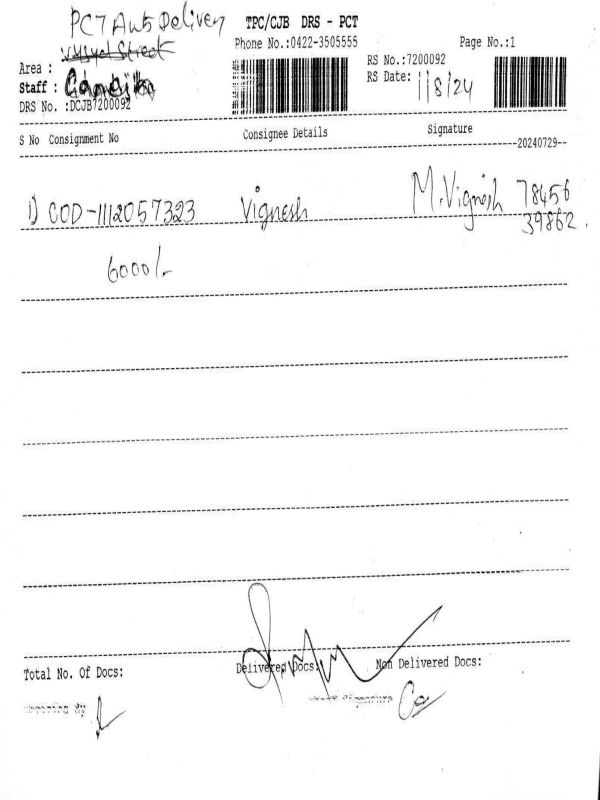 PCT Auto Delivery
TPC/CJB DRS - PCT
Phone No.:0422-3505555
Page No.:1
Area :
RS No.:7200092
Staff :
RS Date: 1/8/24
DRS No. :DCJB7200092
S No Consignment No Consignee Details Signature
20240729
1) COD-1112057323 Vignesh M.Vignesh 78456
39862.
6000/-
Total No. Of Docs: Delivered Docs: Non Delivered Docs: